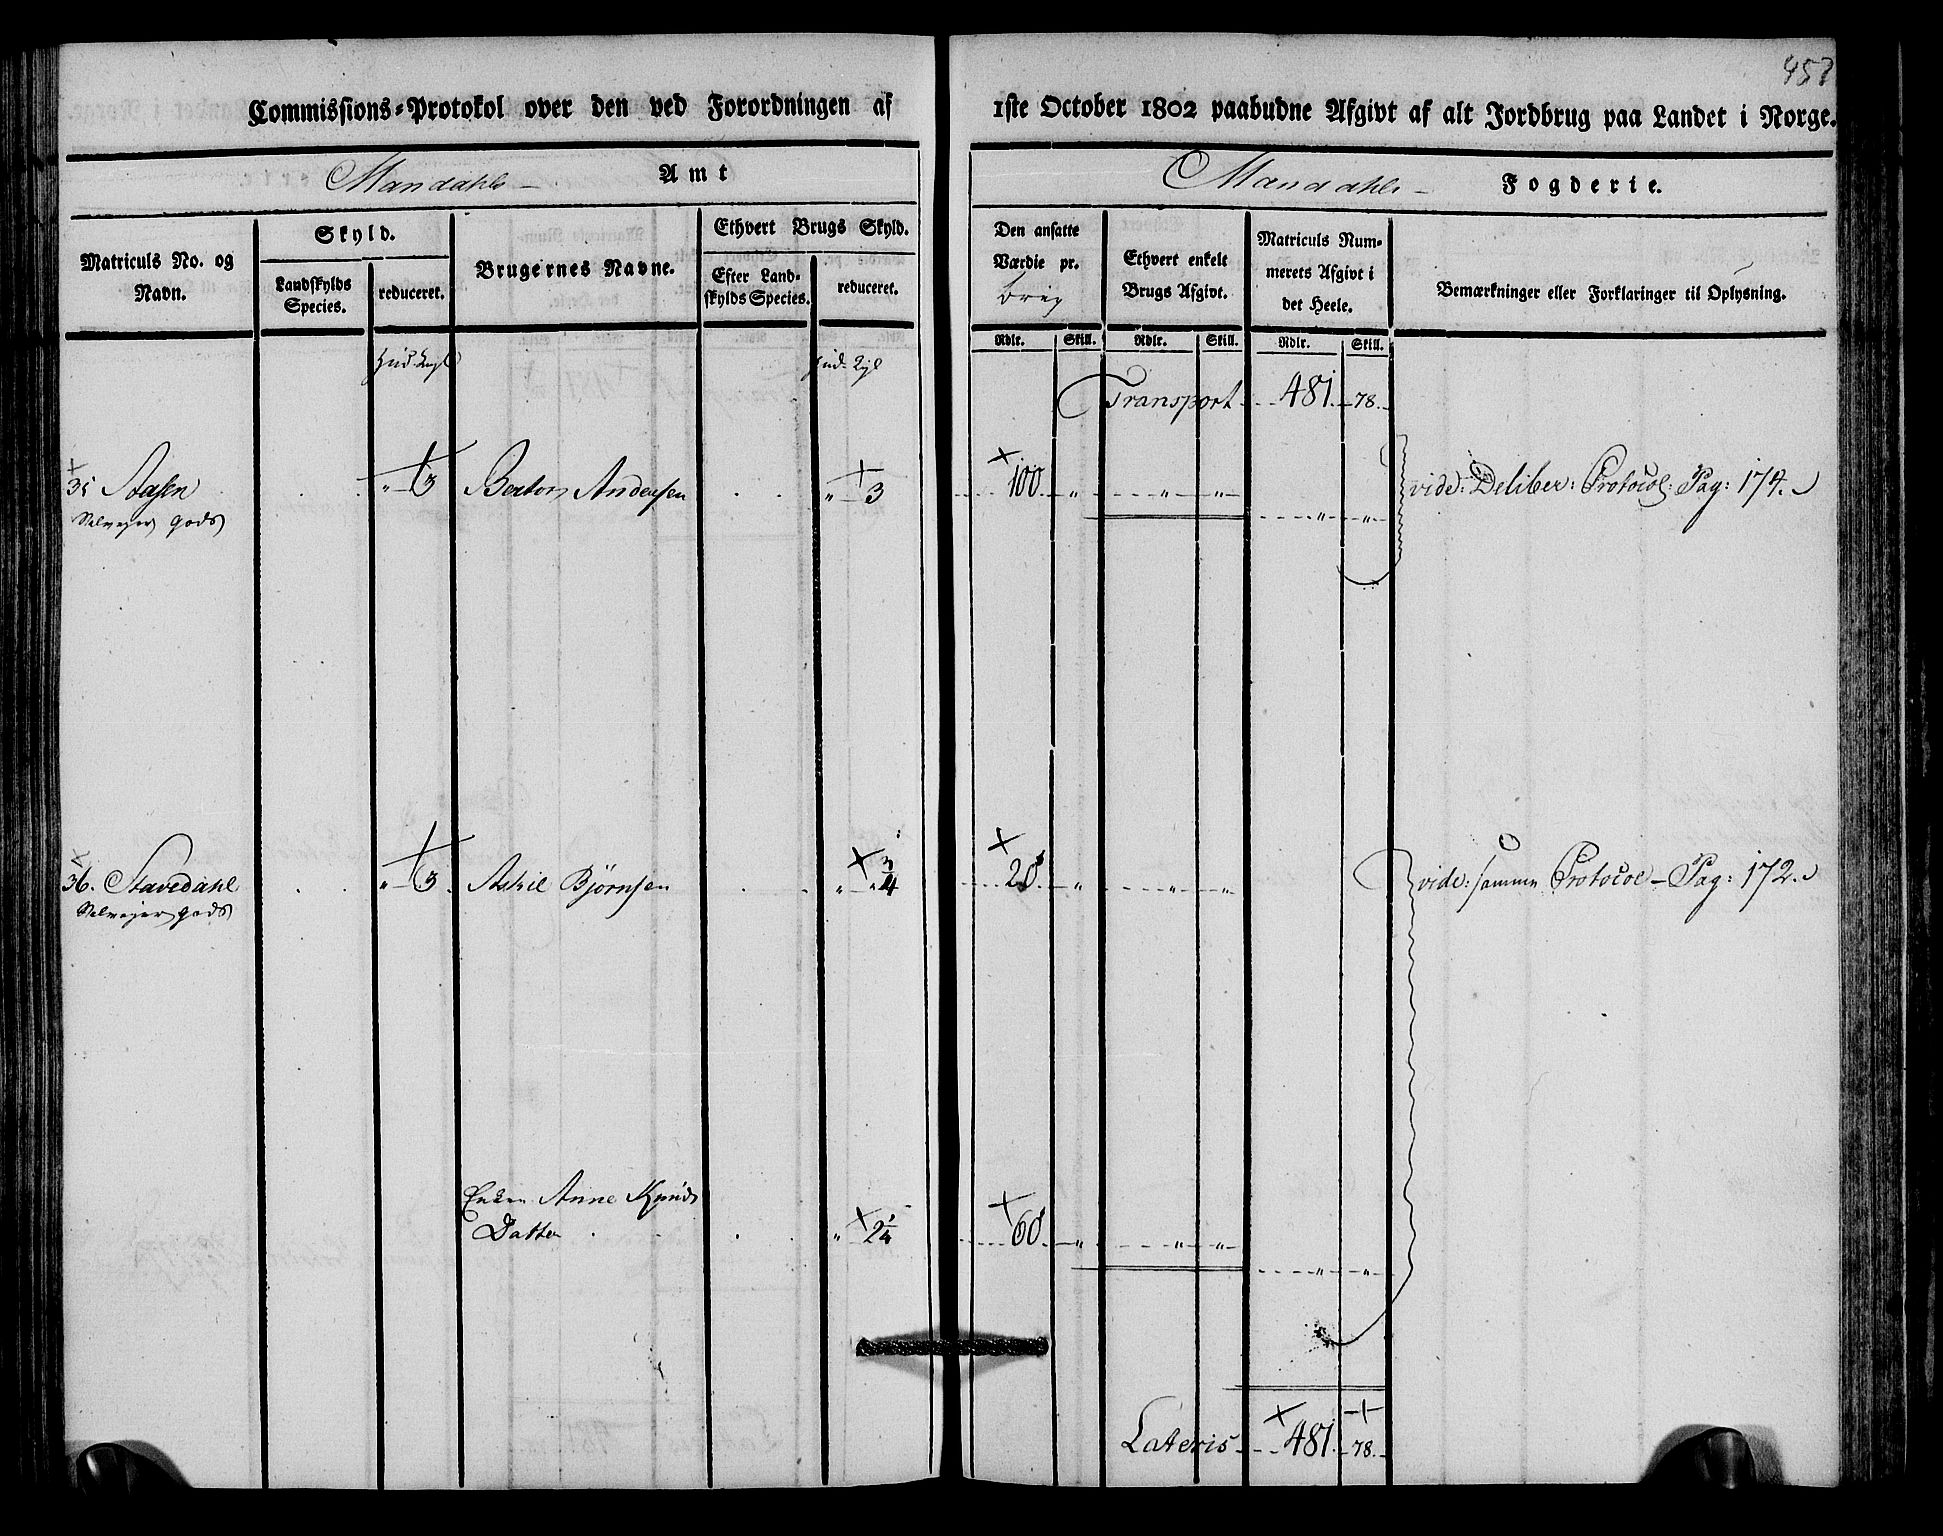 Commissions-Protokol over den ved Forordningen af 1ste October 1802 paabudne Afgivt af alt Jordbrug paa Landet i Norge.
Mandahls Amt
Mandahls Fogderie.
Matriculs No. og Navn.
Skyld.
Landskylds Species.
reduceret.
Brugernes Navne.
Ethvert Brugs Skyld.
Efter Landskylds Species.
reduceret.
Den ansatte Værdie pr. brug
Ethvert enkelt Brugs Afgivt.
Matriculs Nummerets Afgivt i det Heele.
Bemærkninger eller Forklaringer til Oplysning.
Rdlr. Skill. Rdlr. Skill. Rdlr. Skill.
Transport 481. 78.
35 Aasen " 3 Anders­en " 3 100 " " " vide: Deliber: Protocol: Pag: 174.
Selvejer gods " "
36. Stavedahl " 3. Askil Bjørnsen " " 3/4 20 " " " vide: sammen Protocol Pag: 172.
Selvejer gods
Enken Anne Knuds
Datter " 2 1/4 60 " " "
" "
Lateris 481. 78.